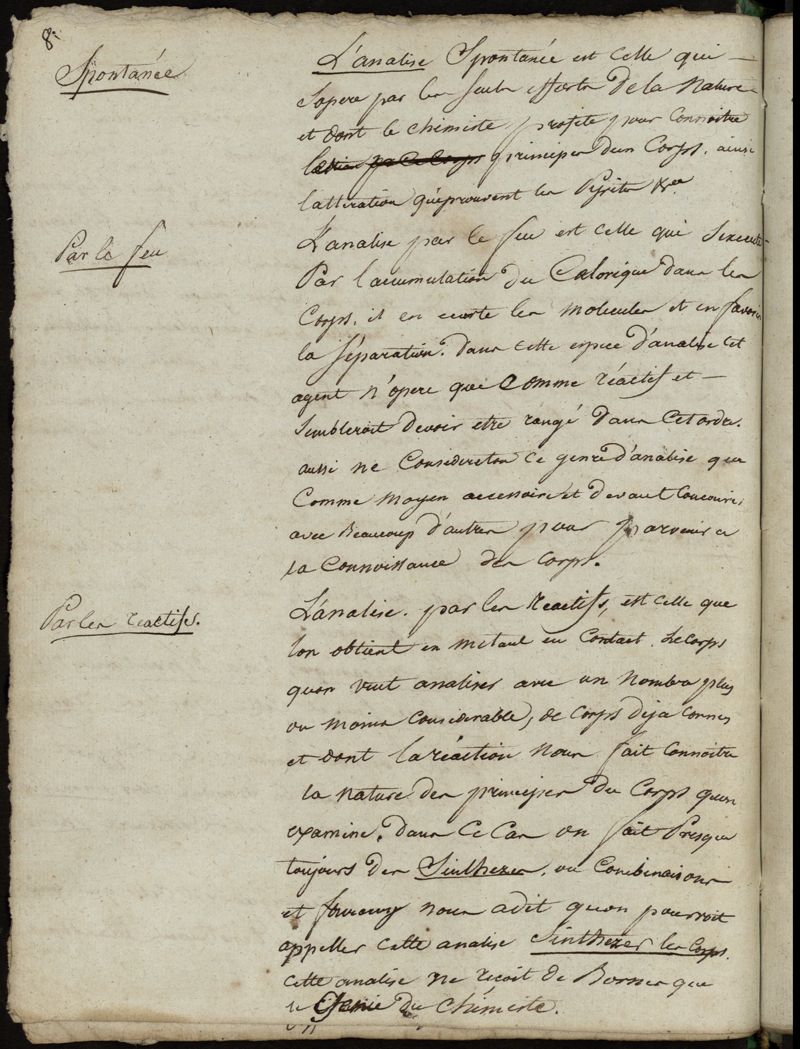 8.
Spontanée
L'analise Spontanée est celle qui —
Sopere par les seuls efforts de la Nature
et dont le chimiste profite pour connoitre
les principes d'un Corps. ainsi
l'alteration qu'eprouvent les Pyrites &ca
Par le feu
L'analise par le feu est celle qui s'execute
Par l'accumulation du Calorique dans les
Corps. il en ecarte les molecules et en favorise
la séparation. dans cette espece d'analise cet
agent n'opere que comme réactif et —
Sembleroit devoir etre rangé dans cet ordre.
aussi ne considereton ce genre d'analise que
Comme moyen accessoire et devant concourir
avec Beaucoup d'autres pour parvenir a
la Connoissance des corps.
Par les reactifs.
L'analise. par les Reactifs, est celle que
lon obtient en metant en contact. le corps
quon veut analiser avec un nombre plus
ou moins considerable, de corps deja connus
et dont la réaction nous fait connoitre
la nature des principes du Corps quon
examine. dans ce cas on fait Presque
toujours des Sinthezes, ou combinaisons
et fourcroy nous adit quon pourroit
appeller cette analise Sinthezer les Corps.
cette analise ne recoit de Bornes que
le Genie du chimiste.